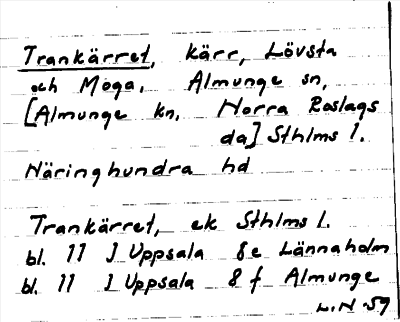 Trankärret, kärr, Lövsta
och Moga, Almunge sn,
[Almunge kn, Norra Roslags
da] Sthlms l.
Näringhundra hd
Trankärret, ek Sthlms l.
bl. 11 I Uppsala 8e Lännaholm
bl. 11 I Uppsala 8 f Almunge
L.N 59